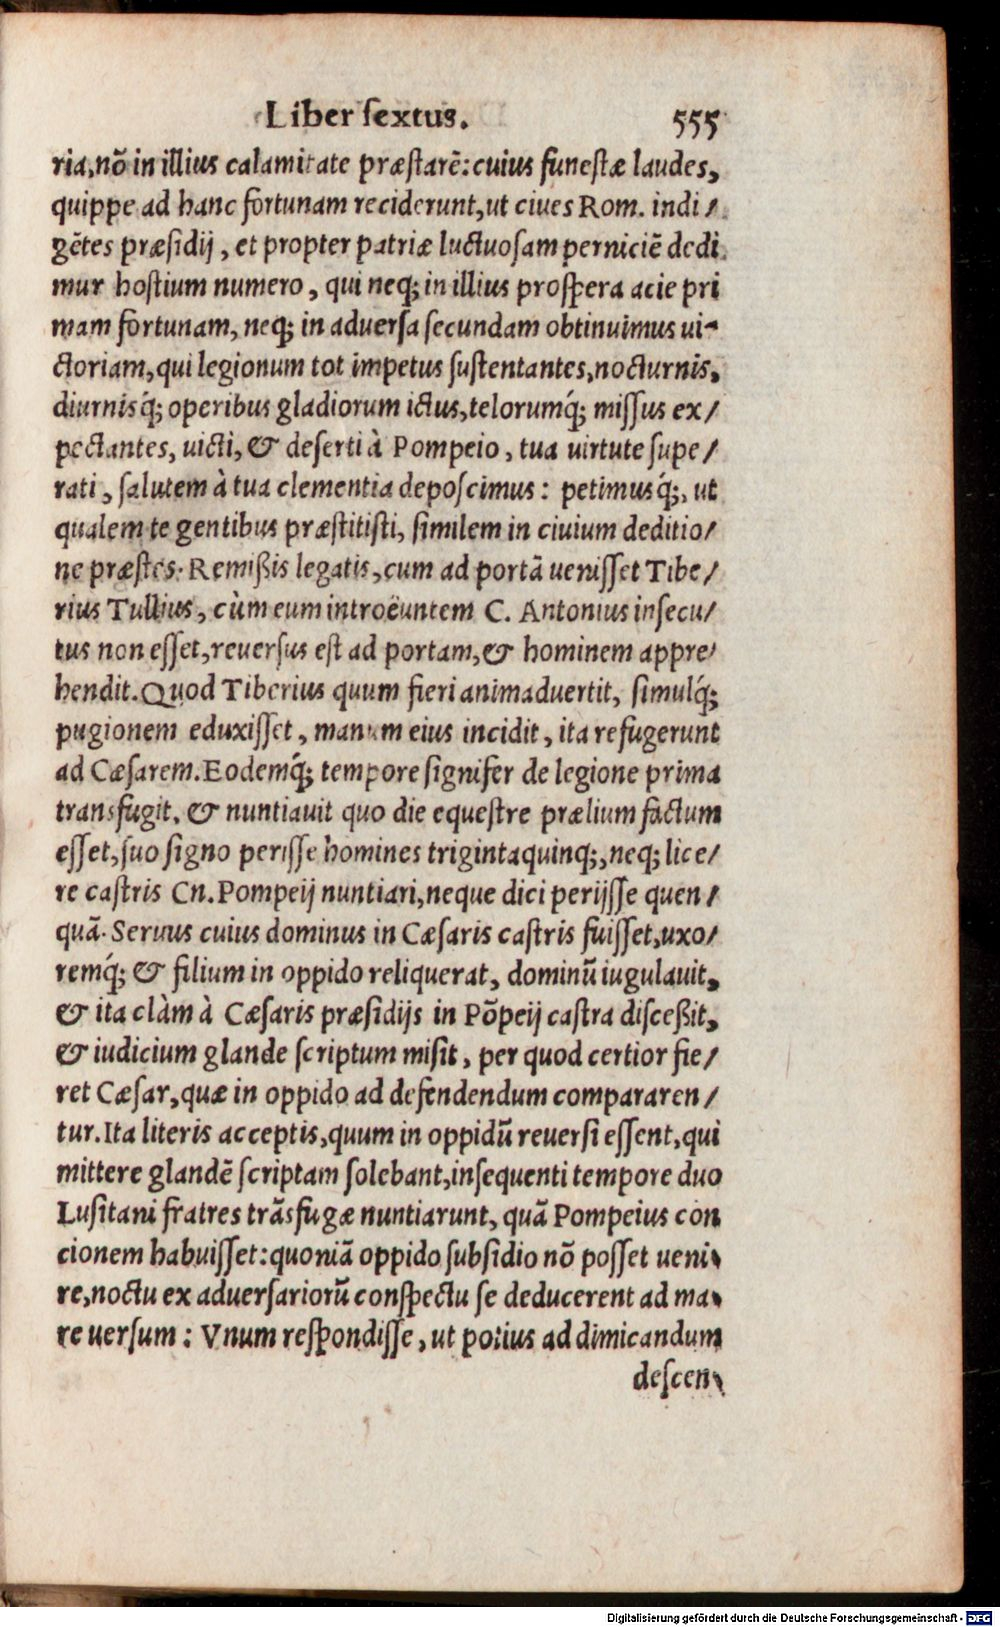 Liber sextus. 555
ria, nõ in illius calamitate præstarẽ: cuius funestæ laudes,
quippe ad hanc fortunam reciderunt, ut cives Rom. indi/
gẽtes præsidij, et propter patriæ luctuosam perniciẽ dedi
mur hostium numero, qui neq; in illius prospera acie pri
mam fortunam, neq; in adversa secundam obtinuimus ui-
ctoriam, qui legionum tot impetus sustentantes, nocturnis,
diurnisq́; operibus gladiorum ictus, telorumq́; missus ex/
pectantes, victi, & deserti à Pompeio, tua virtute supe/
rati, salutem à tua clementia deposcimus: petimusq́;, ut
qualem te gentibus præstitisti, similem in civium deditio/
ne præstes. Remißis legatis, cum ad portã uenisset Tibe/
rius Tullius, cùm eum introëuntem C. Antonius insecu/
tus non esset, reversus est ad portam, & hominem appre/
hendit. Quod Tiberius quum fieri animadvertit, simulq́;
pugionem eduxisset, manum eius incidit, ita refugerunt
ad Cæsarem. Eodemq́; tempore signifer de legione prima
transfugit, & nuntiavit quo die equestre prælium factum
esset, suo signo perisse homines trigintaquinq;, neq; lice/
re castris Cn. Pompeij nuntiari, neque dici perijsse quen/
quã. Seruus cuius dominus in Cæsaris castris fuisset, uxo/
remq́; & filium in oppido reliquerat, dominũ iugulavit,
& ita clàm à Cæsaris præsidijs in Põpeij castra disceßit,
& iudicium glande scriptum misit, per quod certior fie/
ret Cæsar, quæ in oppido ad defendendum compararen/
tur. Ita literis acceptis, quum in oppidũ reversi essent, qui
mittere glandẽ scriptam solebant, insequenti tempore duo
Lusitani fratres trãsfugæ nuntiarunt, quã Pompeius con
cionem habuisset: quoniã oppido subsidio nõ posset ueni-
re, noctu ex adversariorũ conspectu se deducerent ad ma-
re versum: Vnum respondisse, ut potius ad dimicandum
descen-
Digitalisierung gefördert durch die Deutsche Forschungsgemeinschaft - DFG